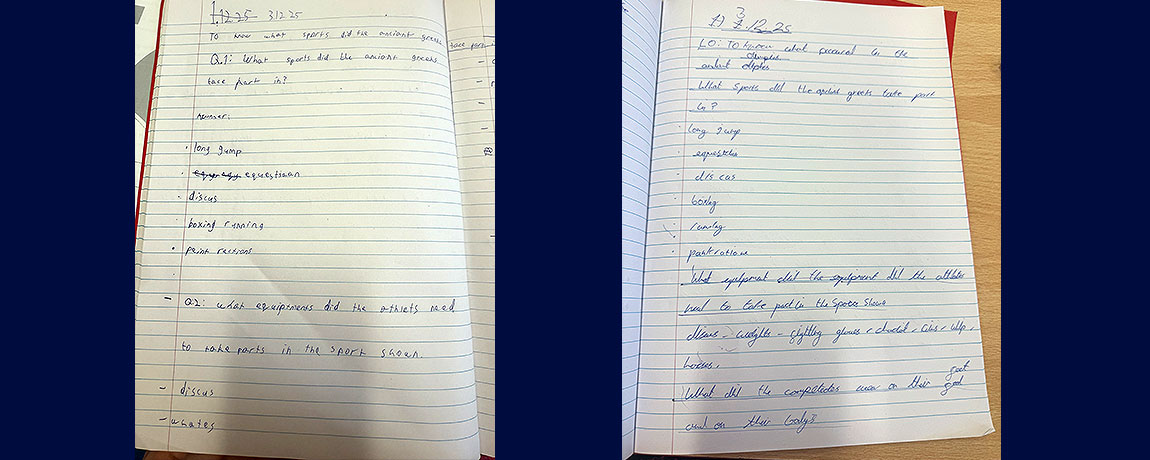 1.12.25 31225
To know what sports did the anciant greeks
Q.1: What sports did the anciant greeks
take part in?
Answer:
· long jump
· equestiaan
· discus
boxing running
· paint ractions
- Q2: what equipments did the athlets need
to take parts in the sport shown.
- discus
- whates
take part
3
1) 1.12.25
LO: To know what occured in the
Olympics
anciant
What sports did the ancient greeks take part
in?
· long jump
equestrian
discus
· boxing
running
· pankration
What equipment did the equipment did the athletes
need to take part in the Sports Shown
discus - weights - fighting gloves - chariot - whip -
horses.
What did the competedos wear on their feet
and on their bodys